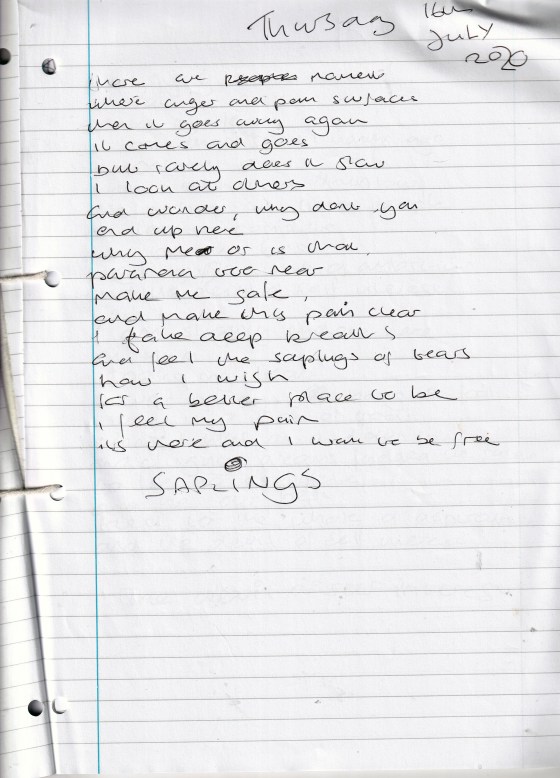 Thursday 16th
July
2020
there are moments
where anger and pain surfaces
then it goes away again
it comes and goes
but rarely does it slow
I look at others
and wonder, why dont you
end up here
why me or is that
paranoia too near
make me safe,
and make this pain clear
I take deep breaths
and feel the saplings of tears
how I wish
for a better place to be
I feel my pain
its here and I want to be free
SAPLINGS